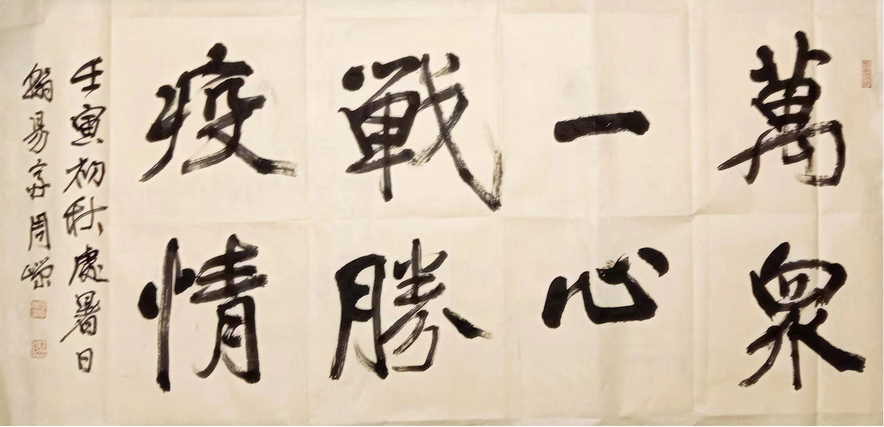 萬衆
一心
戰勝
疫情
壬寅初秋處暑日
易齋周榮